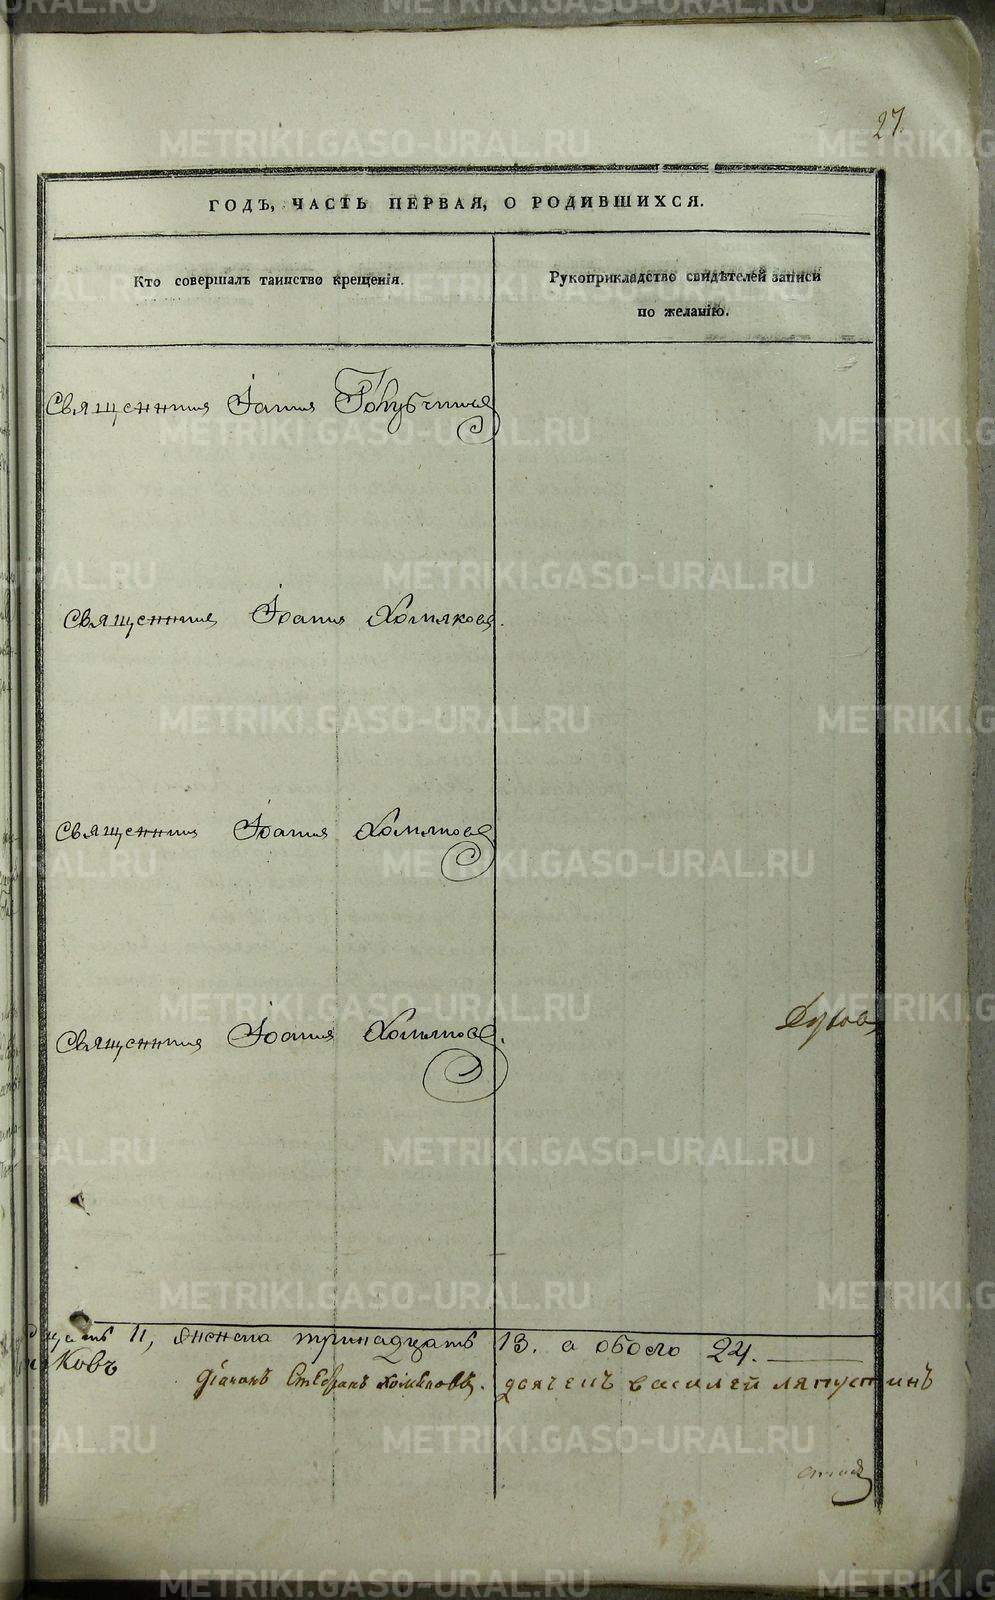 27.
ГОДЪ, ЧАСТЬ ПЕРВАЯ, О РОДИВШИХСЯ.
Кто совершалъ таинство крещенія.
Рукоприкладство свидѣтелей записи
по желанію.
Священникъ Іоаннъ
Священникъ Іоаннъ Хомяковъ.
Священникъ Іоаннъ Хомяковъ
Священникъ Іоаннъ Хомяковъ.
11, женска тринадцать 13. а обоего 24.
ковъ
діаконъ Стефанъ Хомяковъ. дьячецъ василей ляпустинъ
METRIKI.GASO-URAL.RU